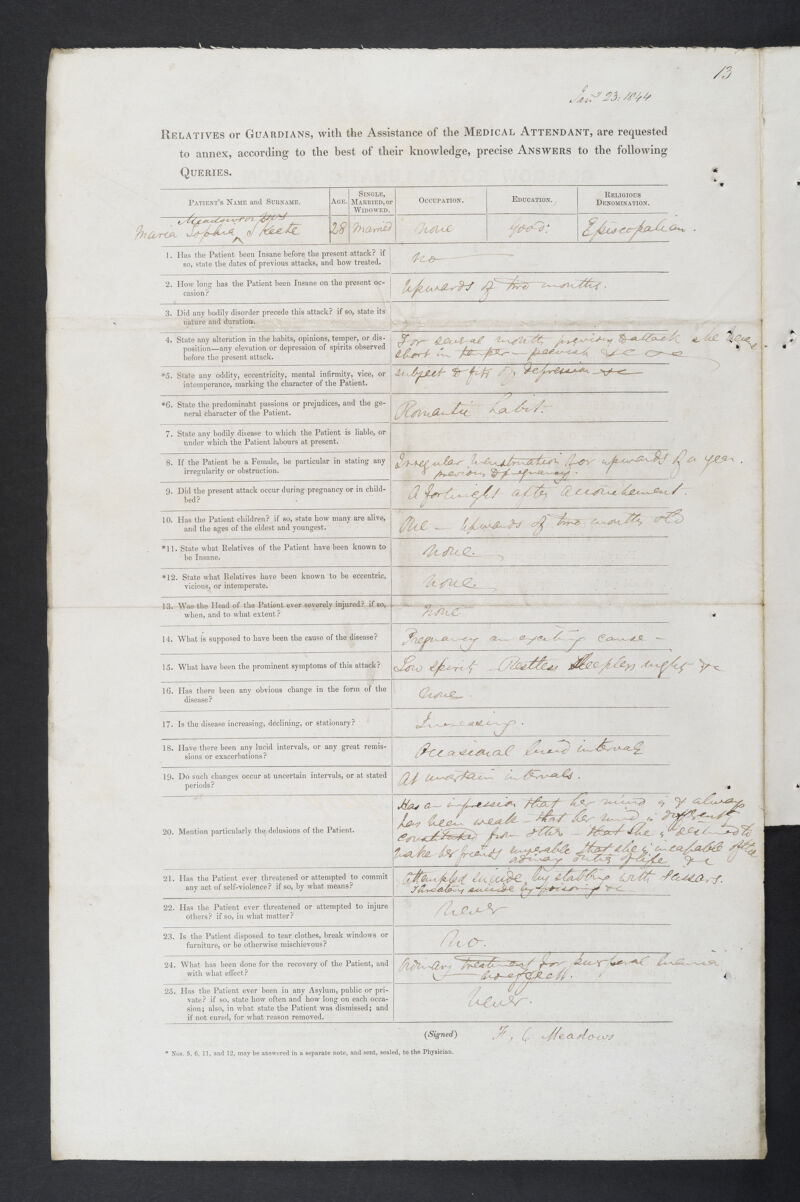 13
Jany 23. 1844
RELATIVES or GUARDIANS, with the Assistance of the MEDICAL ATTENDANT, are requested
to annex, according to the best of their knowledge, precise ANSWERS to the following
QUERIES.
PATIENT'S NAME and SURNAME.
AGE.
SINGLE,
MARRIED, or
WIDOWED.
OCCUPATION.
EDUCATION.
RELIGIOUS
DENOMINATION.
Meadows or
Maria Sophia Skeete
28
Married
None
good:
Episcopalian.
1. Has the Patient been Insane before the present attack? if
so, state the dates of previous attacks, and how treated.
No
2. How long has the Patient been Insane on the present oc-
casion?
Upwards of two months.
3. Did any bodily disorder precede this attack? if so, state its
nature and duration.
4. State any alteration in the habits, opinions, temper, or dis-
position—any elevation or depression of spirits observed
before the present attack.
For several months previous to attack she were
short in temper - peevish &c &c
*5. State any oddity, eccentricity, mental infirmity, vice, or
intemperance, marking the character of the Patient.
subject to fits of depression &c
*6. State the predominant passions or prejudices, and the ge-
neral character of the Patient.
Romantic habit.
7. State any bodily disease to which the Patient is liable, or
under which the Patient labours at present.
8. If the Patient be a Female, be particular in stating any
irregularity or obstruction.
Irregular Menstruation for upwards of a year.
previous to pregnancy.
9. Did the present attack occur during pregnancy or in child-
bed?
A fortnight after accouchement.
10. Has the Patient children? if so, state how many are alive,
and the ages of the eldest and youngest.
One - Upwards of two months old
*11. State what Relatives of the Patient have been known to
be Insane.
None.
*12. State what Relatives have been known to be eccentric,
vicious, or intemperate.
None.
13. Was the Head of the Patient ever severely injured? if so,
when, and to what extent?
None
14. What is supposed to have been the cause of the disease?
Pregnancy an exciting cause -
15. What have been the prominent symptoms of this attack?
Low spirits - Restless Sleepless nights &c
16. Has there been any obvious change in the form of the
disease?
None.
17. Is the disease increasing, declining, or stationary?
Increasing.
18. Have there been any lucid intervals, or any great remis-
sions or exacerbations?
Occasional lucid intervals
19. Do such changes occur at uncertain intervals, or at stated
periods?
At uncertain intervals.
20. Mention particularly the delusions of the Patient.
Has an impression that her mind is & always
has been weak - that her mind is differently
constituted from others - that she is destined to
make her friends miserable that she is incapable of the
ordinary duties of life &c
21. Has the Patient ever threatened or attempted to commit
any act of self-violence? if so, by what means?
Attempted suicide by stabbing with scissars.
Threatens suicide by poisoning &c
22. Has the Patient ever threatened or attempted to injure
others? if so, in what matter?
Never
23. Is the Patient disposed to tear clothes, break windows or
furniture, or be otherwise mischievous?
No.
24. What has been done for the recovery of the Patient, and
with what effect?
Ordinary treatment for puerperal mania
no effect.
25. Has the Patient ever been in any Asylum, public or pri-
vate? if so, state how often and how long on each occa-
sion; also, in what state the Patient was dismissed; and
if not cured, for what reason removed.
Never.
(Signed)
F. C Meadows
* Nos. 5, 6, 11, and 12, may be answered in a separate note, and sent, sealed, to the Physician.